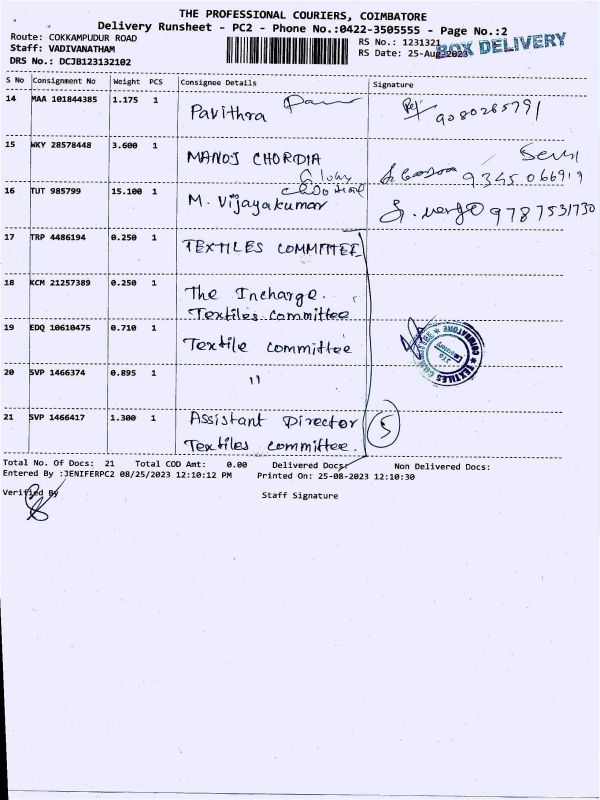 THE PROFESSIONAL COURIERS, COIMBATORE
Delivery Runsheet - PC2 - Phone No.:0422-3505555 - Page No.:2
Route: COKKAMPUDUR ROAD
Staff: VADIVANATHAM
DRS No.: DCJB123132102
RS No.: 1231321
RS Date: 25-Aug-2023
BOX DELIVERY
S No Consignment No Weight PCS Consignee Details Signature
14 MAA 101844385 1.175 1 Pavithra 9080265791
15 WKY 28578448 3.600 1 MANOJ CHORDIA 9345066919
16 TUT 985799 15.100 1 M. Vijayakumar 9787531730
17 TRP 4486194 0.250 1 TEXTILES COMMITTEE
18 KCM 21257389 0.250 1 The Incharge.
Textiles committee
19 EDQ 10610475 0.710 1 Textile committee
20 SVP 1466374 0.895 1 11
21 SVP 1466417 1.300 1 Assistant Director
Textiles committee.
5
Total No. Of Docs: 21 Total COD Amt: 0.00 Delivered Docs: Non Delivered Docs:
Entered By :JENIFERPC2 08/25/2023 12:10:12 PM Printed On: 25-08-2023 12:10:30
Verified By Staff Signature